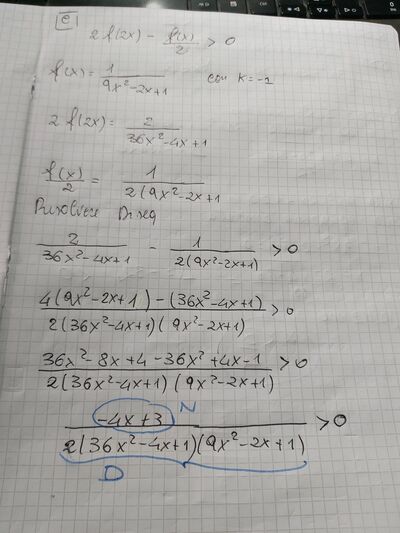 e
2f(2x) - f(x)/2 > 0
f(x) = 1/(9x²-2x+1) con K=-1
2f(2x) = 2/(36x²-4x+1)
f(x)/2 = 1/(2(9x²-2x+1
Risolvere Diseq
2/(36x²-4x+1) - 1/(2(9x²-2x+1)) > 0
(4(9x²-2x+1) - (36x²-4x+1))/(2(36x²-4x+1)(9x²-2x+1)) > 0
(36x²-8x+4-36x²+4x-1)/(2(36x²-4x+1)(9x²-2x+1)) > 0
(-4x+3)/(2(36x²-4x+1)(9x²-2x+1)) > 0
N
D